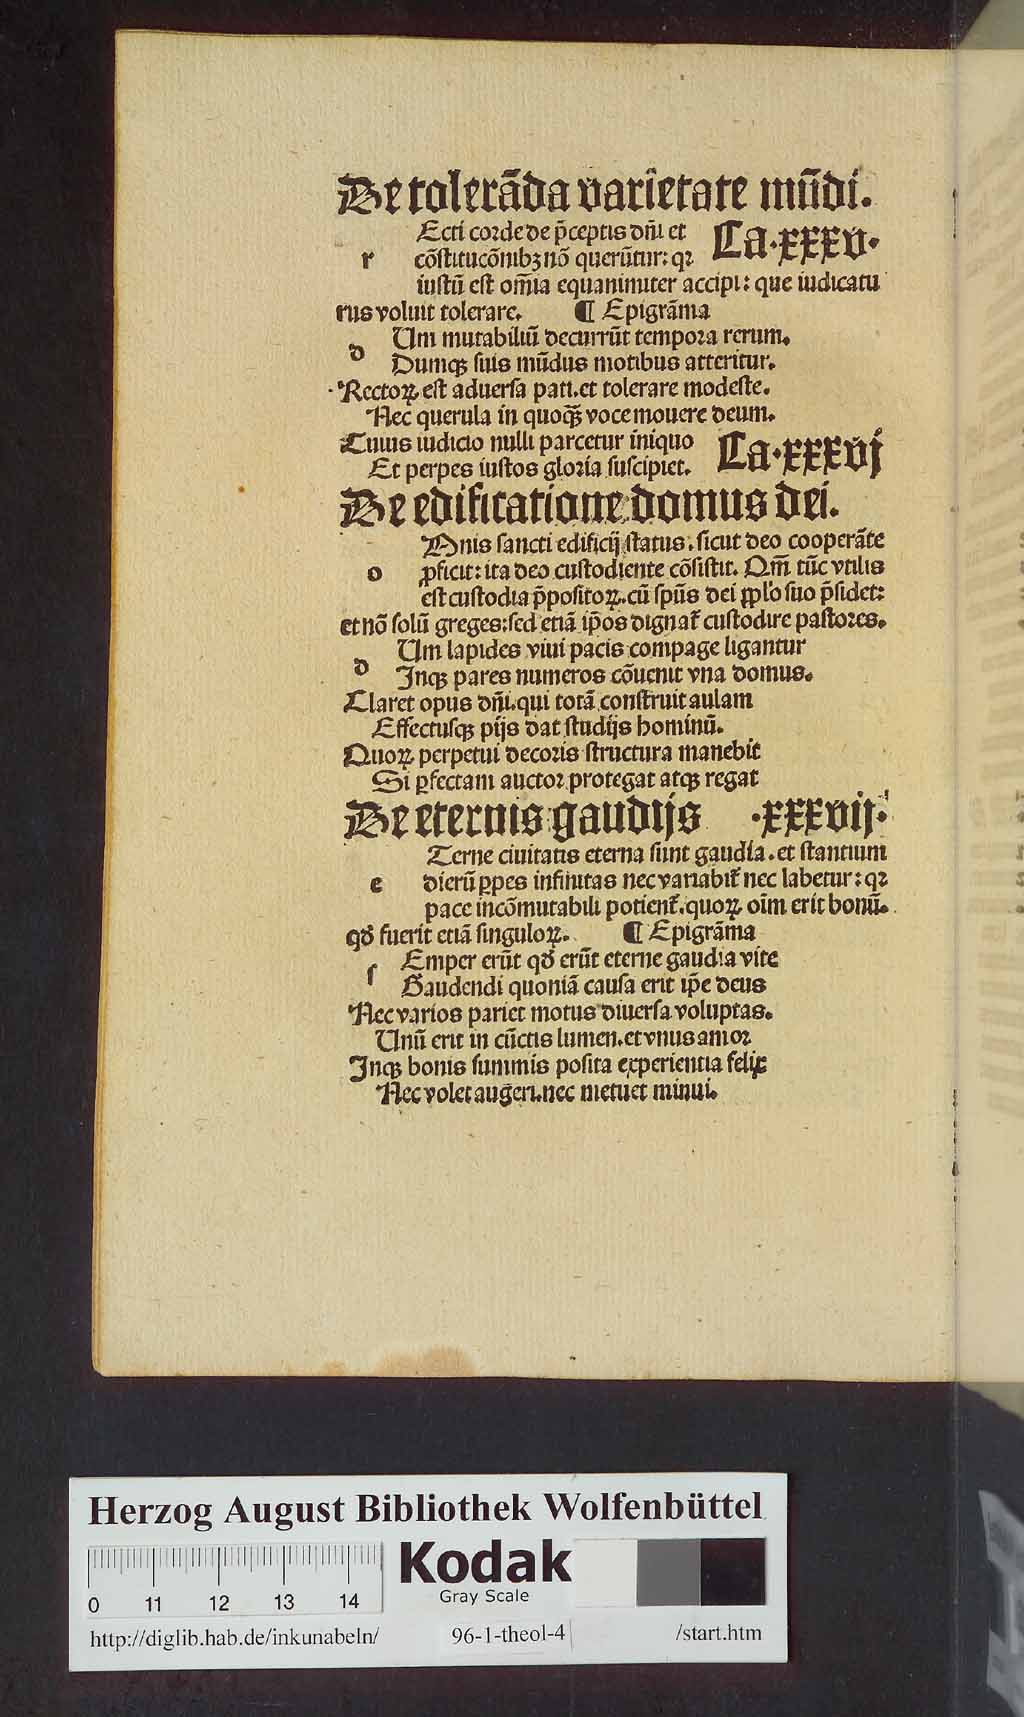 De tolerāda varietate mūdi.
Ecti corde de p̄ceptis dn̄i et Ca.xxxv.
r cōstitucōnibꝫ nō querūtur: qꝛ
iustū est om̄ia equanimiter accipi: que iudicatu
rus voluit tolerare. ¶ Epigrāma
Um mutabiliū decurrūt tempora rerum.
d Dumqꝫ suis mūdus motibus atteritur.
Rectoꝝ est aduersa pati.et tolerare modeste.
Nec querula in quoqꝫ̄ voce mouere deum.
Cuius iudicio nulli parcetur iniquo Ca.xxxvj
Et perpes iustos gloria suscipiet.
De edificatione domus dei.
Mnis sancti edificij status.sicut deo cooperāte
o ꝓficit: ita deo custodiente cōsistit. Qm̄ tūc vtilis
est custodia p̄positoꝝ.cū spūs dei ppl'o suo p̄sidet:
et nō solū greges:sed etiā ip̄os dignat̉ custodire pastores.
Um lapides viui pacis compage ligantur
d Inqꝫ pares numeros cōuenit vna domus.
Claret opus dn̄i.qui totā construit aulam
Effectusqꝫ pijs dat studijs hominū.
Quoꝝ perpetui decoris structura manebit
Si ꝑfectam auctor protegat atqꝫ regat
De eternis gaudijs .xxxvij.
Terne ciuitatis eterna sunt gaudia.et stantium
e dierū ꝑpes infinitas nec variabit̉ nec labetur: qꝛ
pace incōmutabili potient̉.quoꝝ oīm erit bonū.
qd̛ fuerit etiā singuloꝝ. ¶ Epigrāma
Emper erūt qd̛ erūt eterne gaudia vite
ſ Gaudendi quoniā causa erit ip̄e deus
Nec varios pariet motus diuersa voluptas.
Unū erit in cūctis lumen.et vnus amor
Inqꝫ bonis summis posita experientia felix
Nec volet augeri.nec metuet minui.
Herzog August Bibliothek Wolfenbüttel
Kodak
Gray Scale
0 11 12 13 14
http://diglib.hab.de/inkunabeln/ 96-1-theol-4 /start.htm